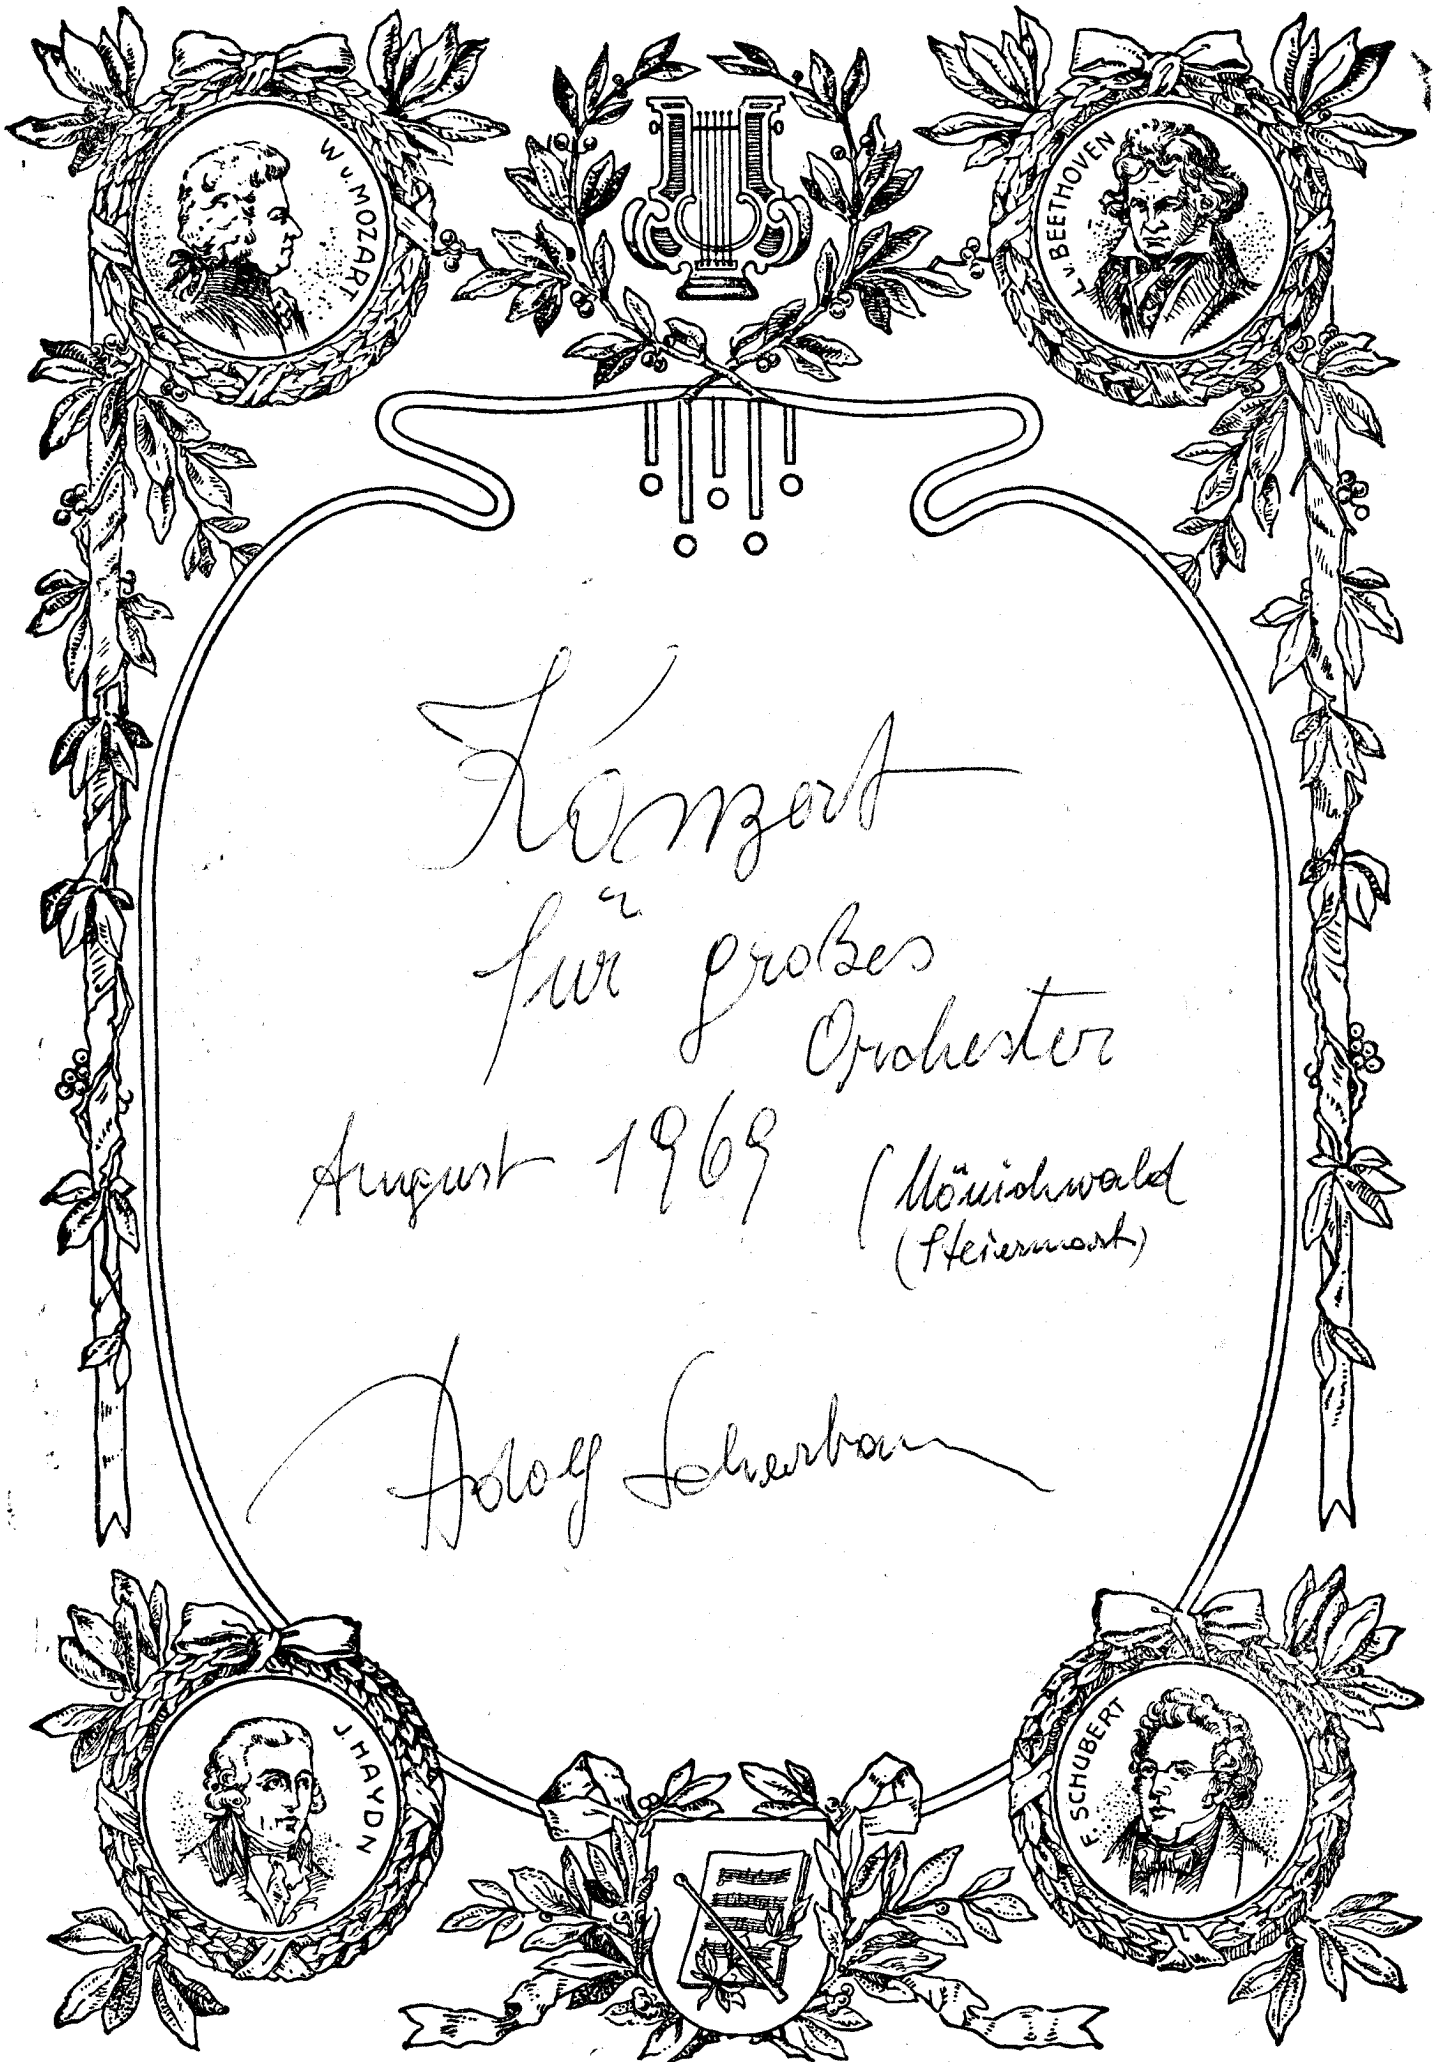 W. v. MOZART
L. v. BEETHOVEN
Konzert
für großes
Orchester
August 1969 (Mönichwald
(Steiermark)
Adolf Scherbaum
J. HAYDN
F. SCHUBERT